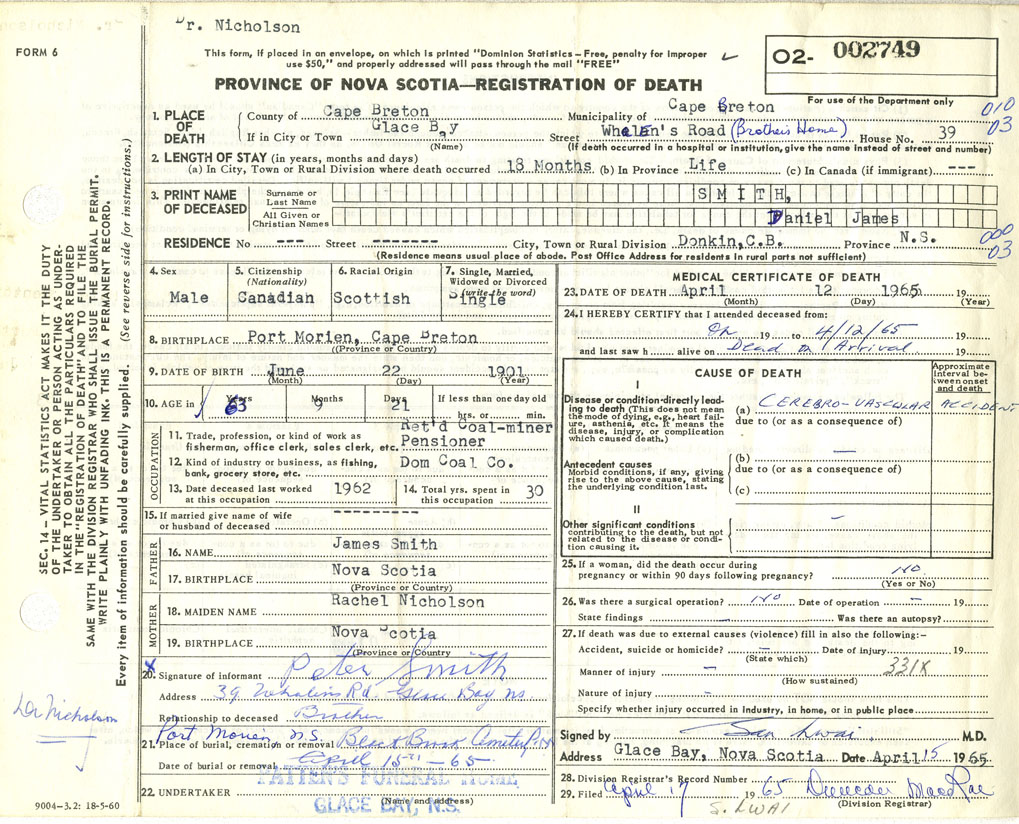 Dr. Nicholson
FORM 6
This form, if placed in an envelope, on which is printed "Dominion Statistics – Free, penalty for improper
use $50," and properly addressed will pass through the mail "FREE"
02- 002749
PROVINCE OF NOVA SCOTIA—REGISTRATION OF DEATH
For use of the Department only
010
03
1. PLACE OF DEATH
County of Cape Breton Municipality of Cape Breton
If in City or Town Glace Bay (Name) Street Whalen's Road (Brother's Home) House No. 39
(If death occurred in a hospital or institution, give the name instead of street and number)
2. LENGTH OF STAY (in years, months and days)
(a) In City, Town or Rural Division where death occurred 18 Months (b) In Province Life (c) In Canada (if immigrant) ---
3. PRINT NAME OF DECEASED
Surname or Last Name SMITH,
All Given or Christian Names Daniel James
RESIDENCE No --- Street ------- City, Town or Rural Division Donkin, C.B. Province N.S.
000
03
(Residence means usual place of abode. Post Office Address for residents in rural parts not sufficient)
4. Sex
Male
5. Citizenship
(Nationality)
Canadian
6. Racial Origin
Scottish
7. Single, Married, Widowed or Divorced
(write the word)
Single
8. BIRTHPLACE Port Morien, Cape Breton
(Province or Country)
9. DATE OF BIRTH June 22 1901
(Month) (Day) (Year)
10. AGE in Years 63 Months 9 Days 21 If less than one day old
hrs. or min.
OCCUPATION
11. Trade, profession, or kind of work as
fisherman, office clerk, sales clerk, etc. Ret'd Coal-miner Pensioner
12. Kind of industry or business, as fishing,
bank, grocery store, etc. Dom Coal Co.
13. Date deceased last worked
at this occupation 1962
14. Total yrs. spent in
this occupation 30
15. If married give name of wife
or husband of deceased ---------
FATHER
16. NAME James Smith
17. BIRTHPLACE Nova Scotia
(Province or Country)
MOTHER
18. MAIDEN NAME Rachel Nicholson
19. BIRTHPLACE Nova Scotia
(Province or Country
X
20. Signature of informant Peter Smith
Address 39 Whalens Rd. Glace Bay ns.
Relationship to deceased Brother
Port Morien, n.s.
21. Place of burial, cremation or removal Black Brook Cemetery
Date of burial or removal April 15 - 65
22. UNDERTAKER
PATTEN'S FUNERAL HOME
(Name and address)
GLACE BAY, N.S.
9004-3.2: 18-5-60
SEC. 14 – VITAL STATISTICS ACT MAKES IT THE DUTY
OF THE UNDERTAKER OR PERSON ACTING AS UNDER-
TAKER TO OBTAIN ALL THE PARTICULARS REQUIRED
IN THE "REGISTRATION OF DEATH" AND TO FILE THE
SAME WITH THE DIVISION REGISTRAR WHO SHALL ISSUE THE BURIAL PERMIT.
WRITE PLAINLY WITH UNFADING INK. THIS IS A PERMANENT RECORD.
Every item of information should be carefully supplied. (See reverse side for instructions.)
Dr Nicholson
MEDICAL CERTIFICATE OF DEATH
23. DATE OF DEATH April 12 1965 19
(Month) (Day) (Year)
24. I HEREBY CERTIFY that I attended deceased from:
On 19 to 4/12/65
and last saw h alive on Dead on Arrival 19
CAUSE OF DEATH
Approximate interval between onset and death
I
Disease or condition directly lead-
ing to death (This does not mean
the mode of dying, e.g., heart fail-
ure, asthenia, etc. It means the
disease, injury, or complication
which caused death.)
(a) CEREBRO-VASCULAR ACCIDENT
due to (or as a consequence of)
Antecedent causes
Morbid conditions, if any, giving
rise to the above cause, stating
the underlying condition last.
(b) —
due to (or as a consequence of)
(c)
II
Other significant conditions
contributing to the death, but not
related to the disease or condi-
tion causing it.
–
25. If a woman, did the death occur during
pregnancy or within 90 days following pregnancy? NO
(Yes or No)
26. Was there a surgical operation? NO Date of operation – 19
State findings – Was there an autopsy?
27. If death was due to external causes (violence) fill in also the following:–
Accident, suicide or homicide? – Date of injury 19
(State which)
Manner of injury – 331X
(How sustained)
Nature of injury –
Specify whether injury occurred in industry, in home, or in public place
Signed by San Lwai M.D.
Address Glace Bay, Nova Scotia Date April 15 1965
28. Division Registrar's Record Number
29. Filed April 17 1965 Duncan MacRae
(Division Registrar)
S. LWAI